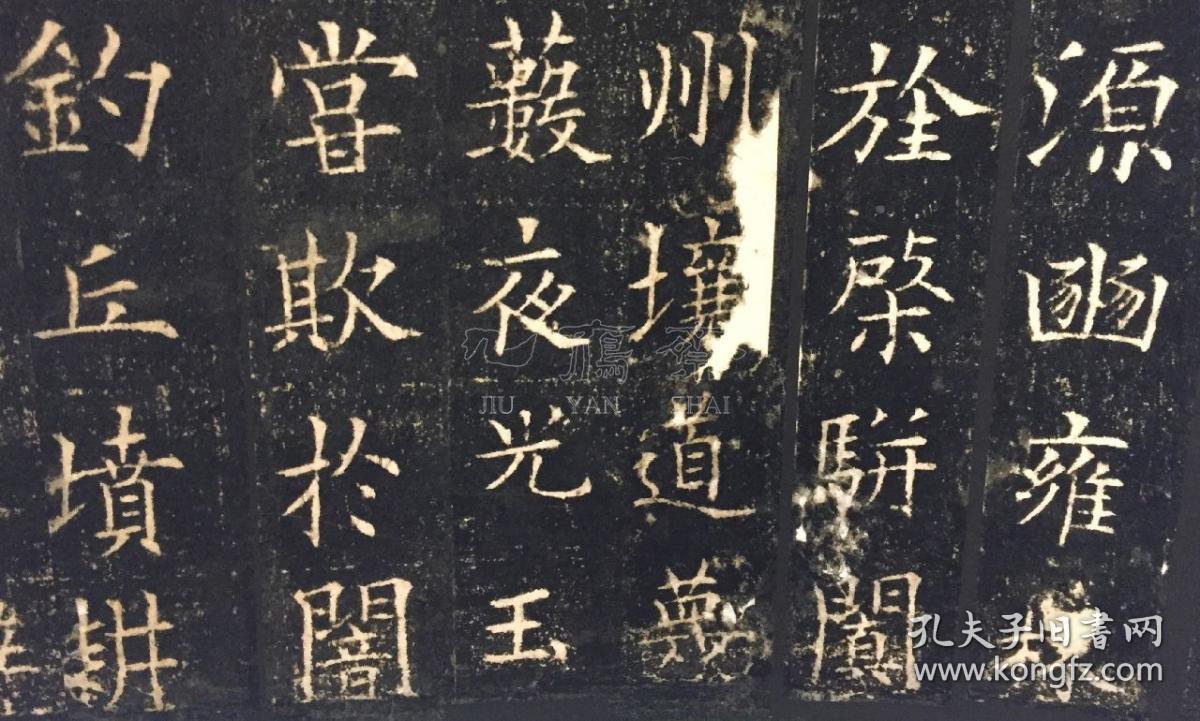 源豳雍
旌棨駢闐
州壤道
藪夜光玉
嘗欺於闇
釣丘墳耕
九鴈齋
JIU YAN ZHAI
孔夫子旧書网
www.kongfz.com